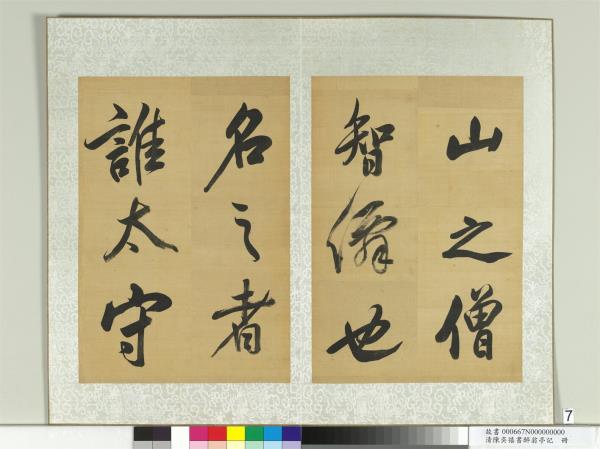 山之僧
智僊也
名之者
誰太守
7
故書 000667N000000000
清陳奕禧書醉翁亭記 冊